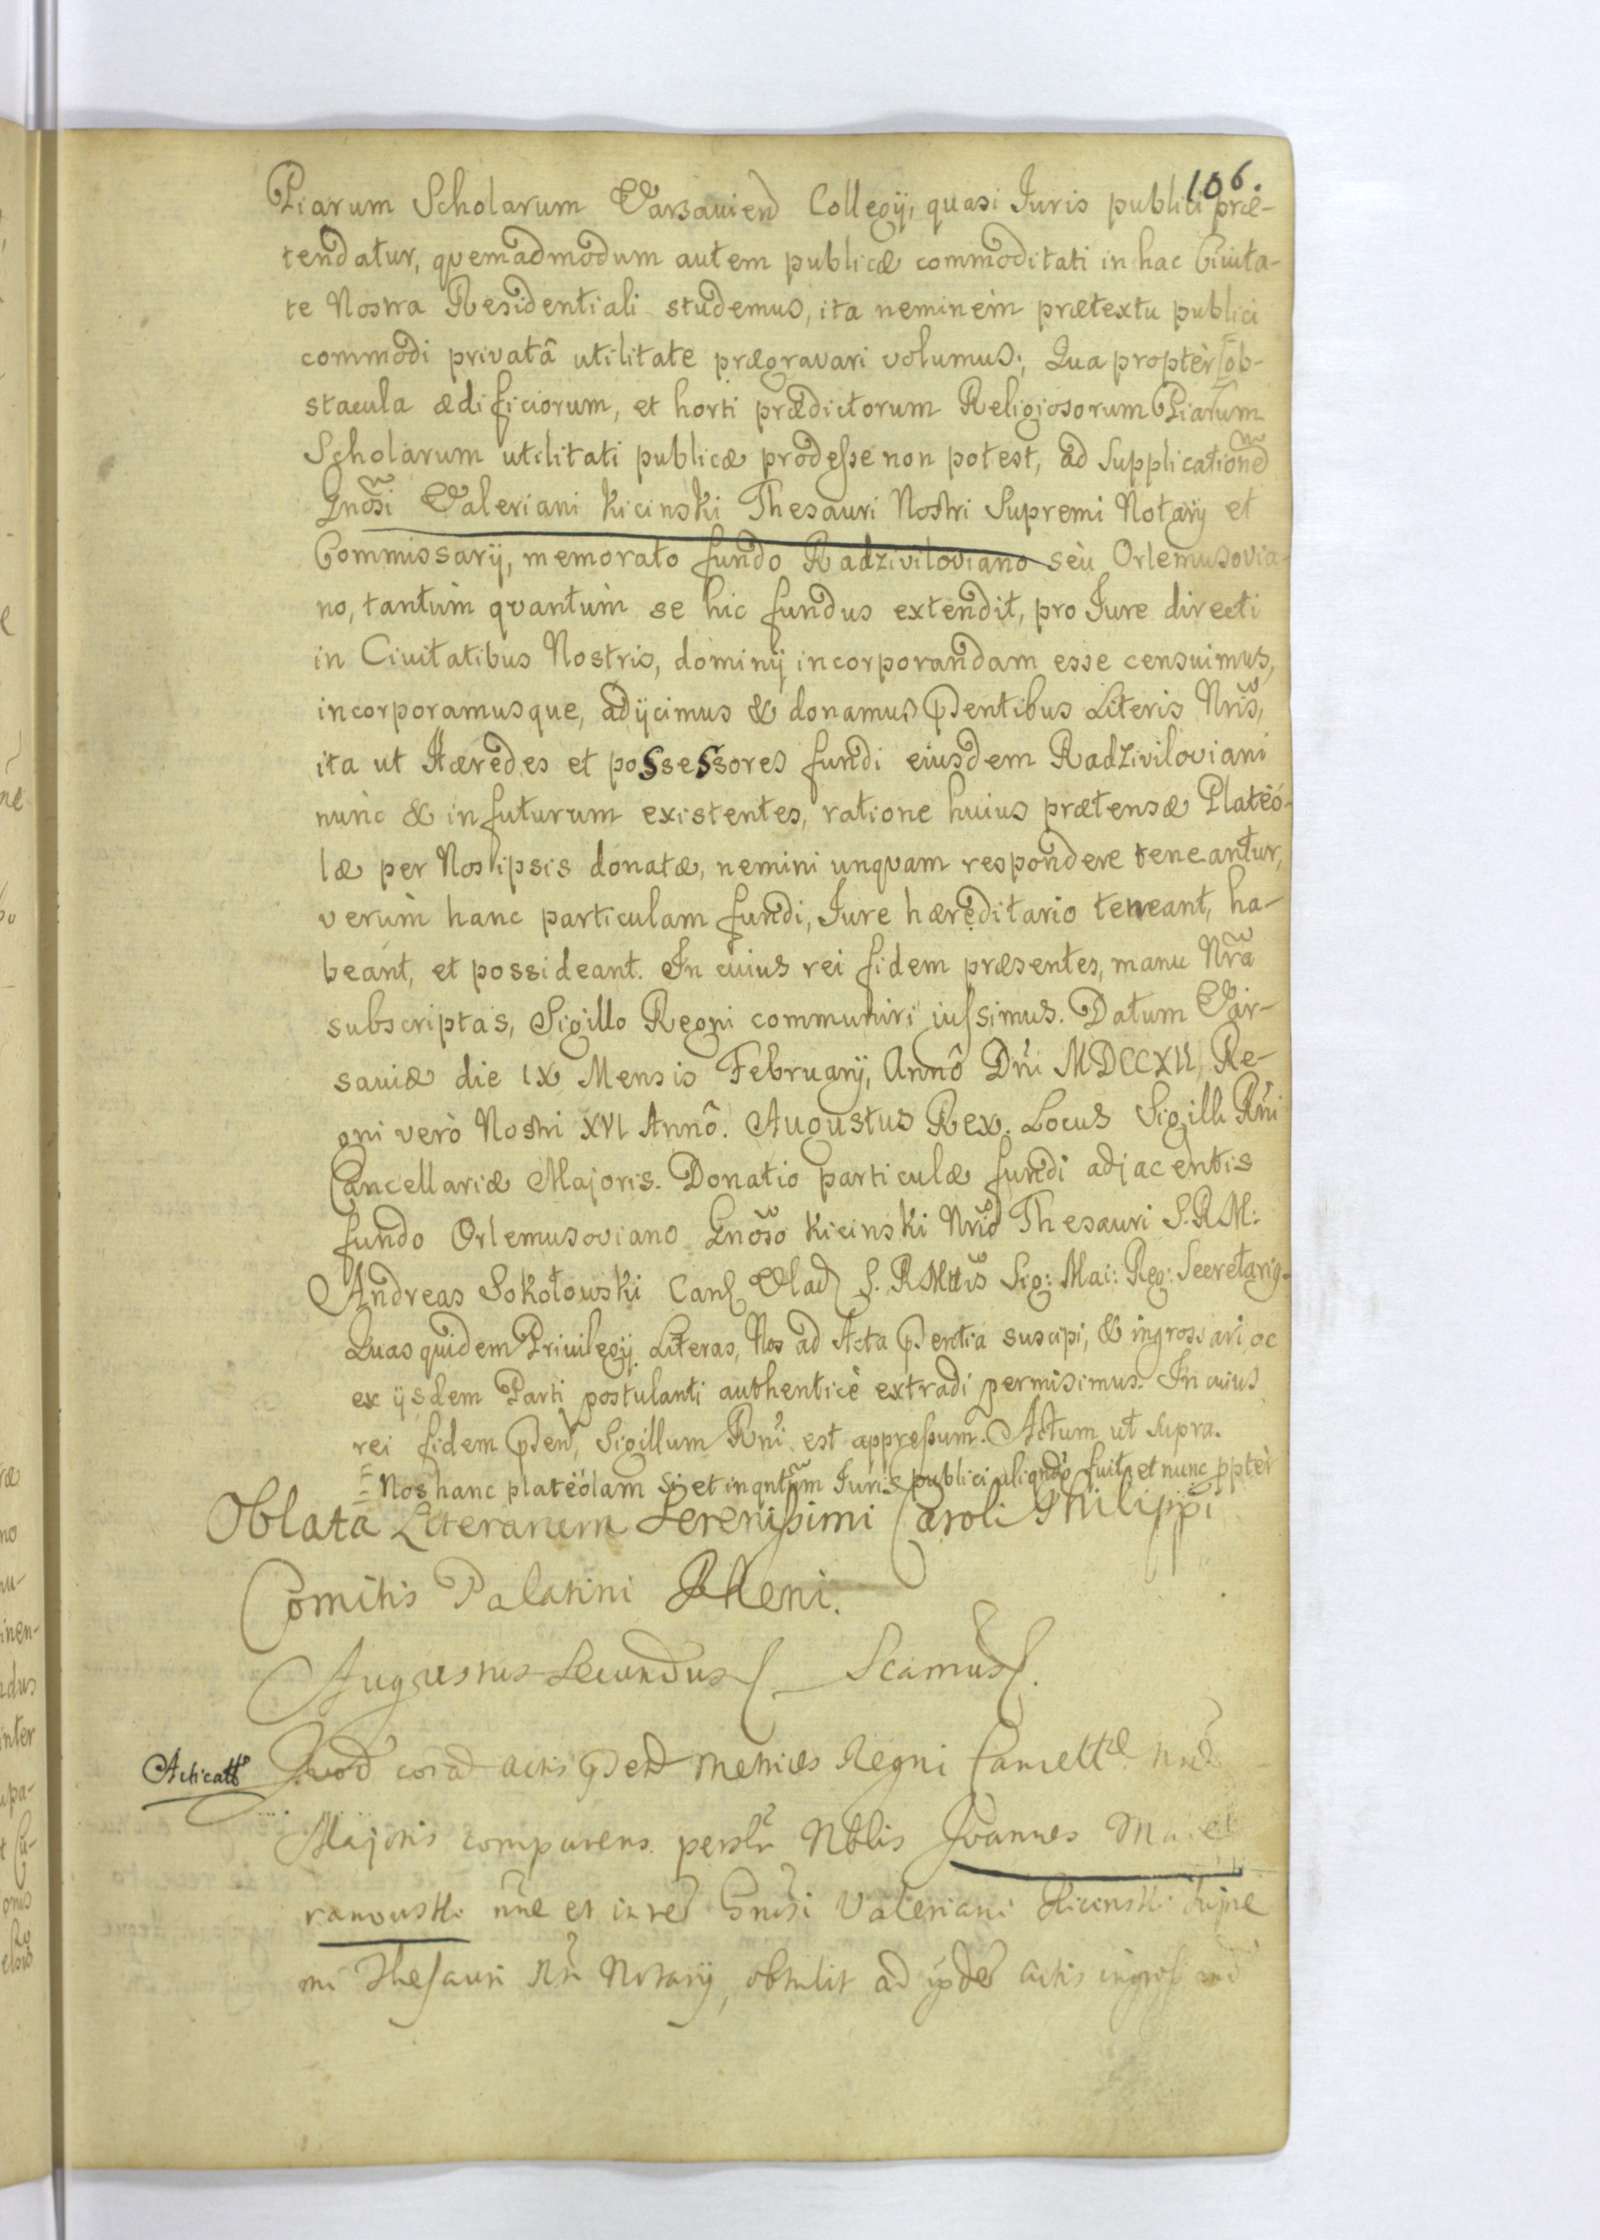 106.
Piarum Scholarum Varsaviend Collegij, quasi Iuris publici præ-
tendatur, quemadmodum autem publicæ commoditati in hac Civita-
te Nostra Residentiali studemus, ita neminem prætextu publici
commodi privatâ utilitate prægravari volumus; Qua proptèr ob-
stacula ædificiorum, et horti prædictorum Religiosorum Piarum
Scholarum utilitati publicæ prodesse non potest, ad Supplicationẽ
Gnõsi Valeriani Kicinski Thesauri Nostri Supremi Notarij et
Commissarij, memorato fundo Radziviloviano sèu Orlemusovia-
no, tantùm qvantùm se hic fundus extendit, pro Iure directi
in Civitatibus Nostris, dominij incorporandam esse censuimus,
incorporamusque, adijcimus & donamus Pdentibus Literis Nris,
ita ut Hæredes et possessores fundi eiusdem Radziviloviani
nùnc & in futurum existentes, ratione huius prætensæ Plateó-
læ per Nos ipsis donatæ, nemini unqvam respondere teneantur,
verùm hanc particulam fundi, Iure hæreditario teneant, ha-
beant, et possideant. In cuius rei fidem præsentes, manu Nrã
subscriptas, Sigillo Regni communiri iussimus. Datum Var-
saviæ die IX Mensis Februarij, Annô Dni MDCCXII, Re-
gni verò Nostri XVI Annô. Augustus Rex. Locus Sigilli Rni
Cancellariæ Majoris. Donatio particulæ fundi adjacentis
fundo Orlemusoviano Gnõso Kicinski Nrio Thesauri S.R.M:
Andreas Sokołowski S. RMttis Sig: Mai: Reg: Secretarig
Quas quidem Privilegij Literas, Nos ad Acta Pdentia suscipi, & ingrossari ac
ex ijsdem Parti postulanti authenticè extradi permisimus. In cuius
rei fidem Pden, Sigillum Rni est appressum. Actum ut supra.
Nos hanc plateólam si et inqntum Iuris publici aliqndo fuit, et nunc ppter
Oblata Literarum Serenissimi Caroli Philippi
Comitis Palatini Rheni.
Augustus Secundus
Acticatt
Quod corã actis Pden Metrices Regni
Majoris comparens persltr Nblis Joannes
nne et in re Gnosi Valeriani Kicinski Supre
mi Thesauri Notarij, obtulit ad actis